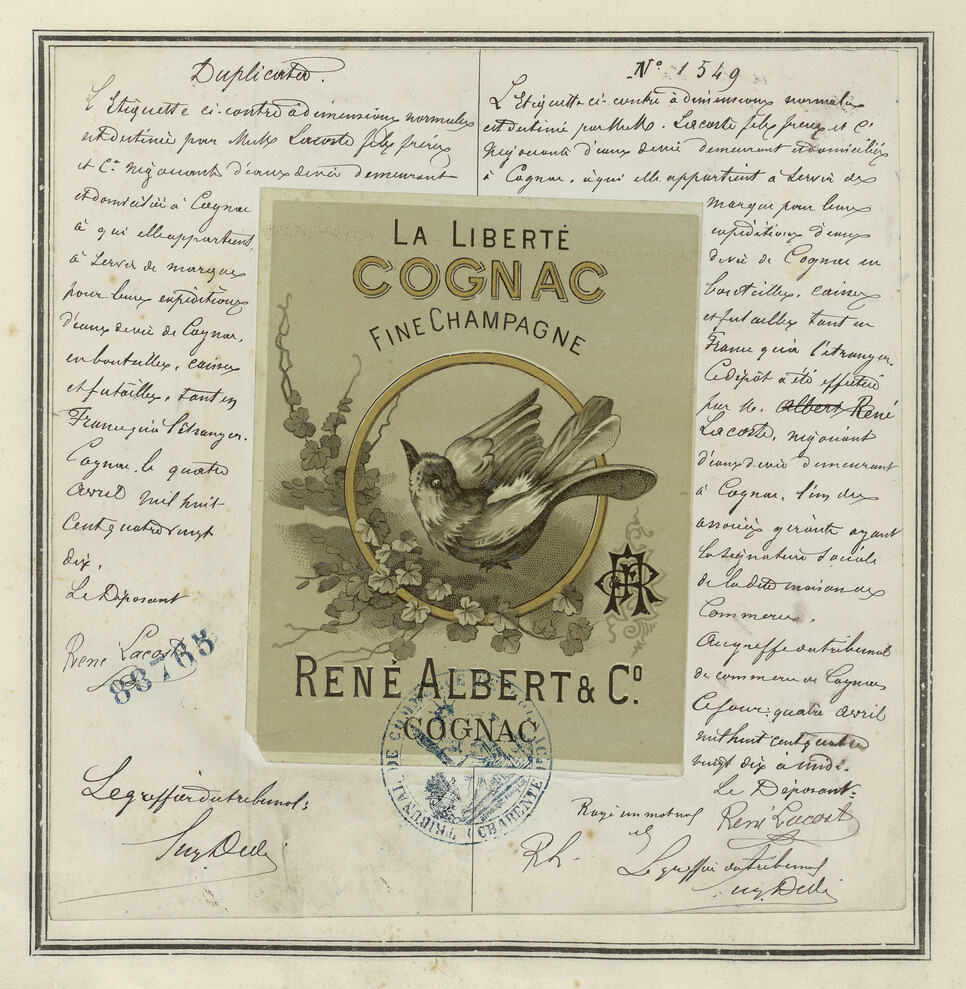 Duplicata.
L'Etiquette ci-contre à dimensions normales
est destinée par M.M. Lacoste fils frères
et Cie négociants d'eaux de vie demeurant
et domiciliés à Cognac
à qui elle appartient,
à servir de marque
pour leurs expéditions
d'eaux de vie de Cognac,
en bouteilles, caisses
et futailles, tant en
France qu'à l'étranger.
Cognac, le quatre
avril mil huit
cent quatre vingt
dix.
Le Déposant
René Lacoste
88765
Le greffier du tribunal:
LA LIBERTÉ
COGNAC
FINE CHAMPAGNE
RENÉ ALBERT & Co.
COGNAC
TRIBUNAL DE COMMERCE DE COGNAC
CHARENTE
No 1549
L'Etiquette ci-contre à dimensions normales
est destinée par M.M. Lacoste fils frères et Cie
négociants d'eaux de vie demeurant et domiciliés
à Cognac, à qui elle appartient à servir de
marque pour leurs
expéditions d'eaux
de vie de Cognac en
bouteilles, caisses
et futailles tant en
France qu'à l'étranger.
Ce dépôt a été effectué
par M. Albert René
Lacoste, négociant
d'eaux de vie demeurant
à Cognac, l'un des
associés gérants ayant
la signature sociale
de la dite maison de
commerce.
Au greffe du tribunal
de commerce de Cognac
Ce jour: quatre avril
mil huit cent quatre
vingt dix à midi.
Le Déposant.
Rayé un mot nul
René Lacoste
RL.
Le greffier du tribunal